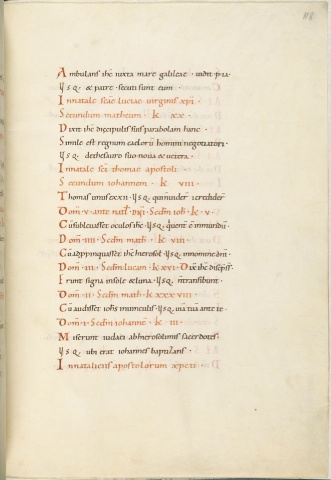 118
Ambulans ihc iuxta mare galileae · uidit pia
usq · & patre · secuti sunt eum ·
Innatale scae luciae uirginis xpi ·
Secundum matheum · k xx ·
Dixit ihc discipulis suis parabolam hanc ·
Simile est regnum caeloru homini negotiatori ·
usq · dethesauro suo noua & uetera ·
Innatale sci thomae apostoli ·
Secundum iohannem · k viii ·
Thomas unus exxii · usq · quinuider crediderr
Dom · v · ante natl dni · Scdm ioh · k · v ·
Cusubleuasset oculos ihc · usq ·
Dom · iiii · Scdm math · k viii ·
Cuadppinquasset ihc hierosol · usq · innomine dni ·
Dom · iii · Scdm lucam · k xxvi · Dix ihc discip
Erunt signa insole & luna · usq · ntransibunt ·
Dom · ii · Scdm math · k xxxviii ·
Cuaudisset iohs inuinculis · usq · uia tua ante te ·
Dom · i · Scdm iohanne · k iii ·
Miserunt iudaei abhierosolimis sacerdotes ·
usq · ubi erat iohannes baptizans ·
Innataliciis apostolorum